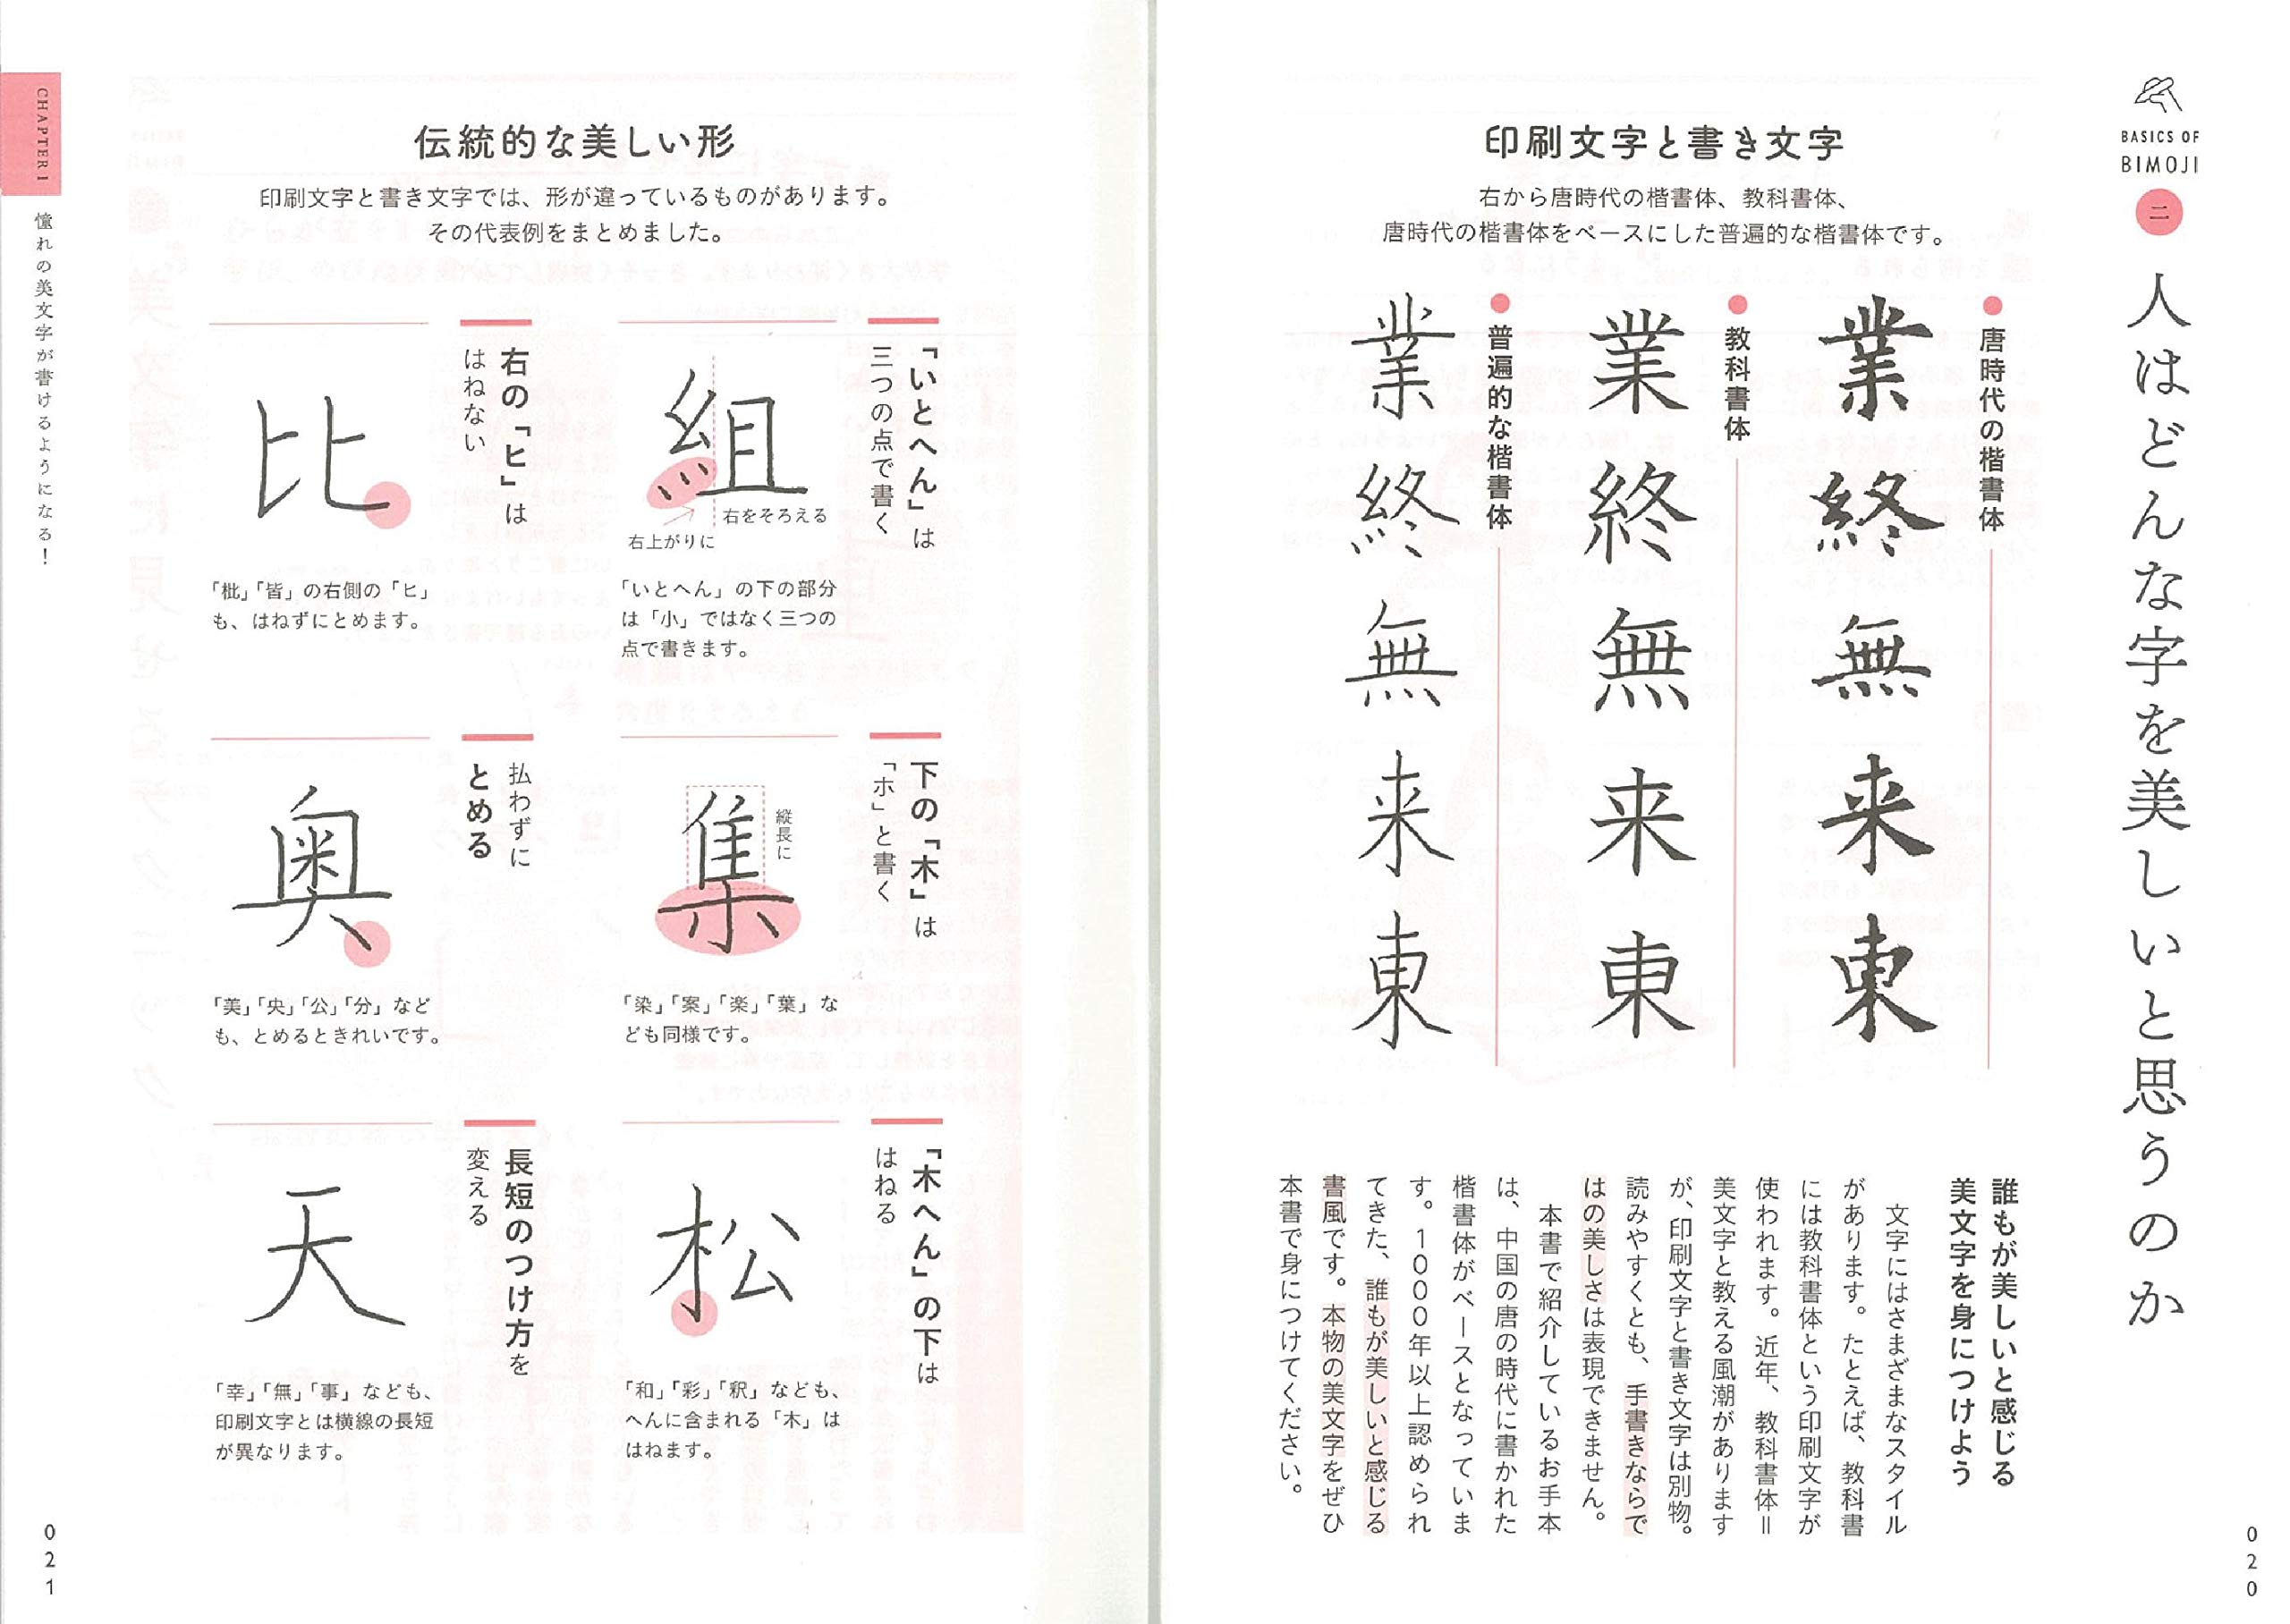 BASICS OF
BIMOJI
二
人はどんな字を美しいと思うのか
印刷文字と書き文字
右から唐時代の楷書体、教科書体、
唐時代の楷書体をベースにした普遍的な楷書体です。
唐時代の楷書体
業終無来東
教科書体
業終無来東
普遍的な楷書体
業終無来東
誰もが美しいと感じる
美文字を身につけよう
文字にはさまざまなスタイル
があります。たとえば、教科書
には教科書体という印刷文字が
使われます。近年、教科書体＝
美文字と教える風潮があります
が、印刷文字と書き文字は別物。
読みやすくとも、手書きならで
はの美しさは表現できません。
本書で紹介しているお手本
は、中国の唐の時代に書かれた
楷書体がベースとなっていま
す。1000年以上認められ
てきた、誰もが美しいと感じる
書風です。本物の美文字をぜひ
本書で身につけてください。
020
伝統的な美しい形
印刷文字と書き文字では、形が違っているものがあります。
その代表例をまとめました。
「いとへん」は
三つの点で書く
組
右をそろえる
右上がりに
「いとへん」の下の部分
は「小」ではなく三つの
点で書きます。
右の「ヒ」は
はねない
比
「枇」「皆」の右側の「ヒ」
も、はねずにとめます。
下の「木」は
「ホ」と書く
集
縦長に
「染」「案」「楽」「葉」な
ども同様です。
払わずに
とめる
奥
「美」「央」「公」「分」など
も、とめるときれいです。
「木へん」の下は
はねる
松
「和」「彩」「釈」なども、
へんに含まれる「木」は
はねます。
長短のつけ方を
変える
天
「幸」「無」「事」なども、
印刷文字とは横線の長短
が異なります。
CHAPTER 1
憧れの美文字が書けるようになる！
021